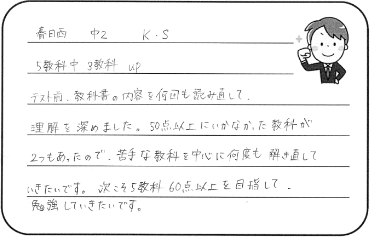 春日西 中2 K・S
5教科中 3教科 up
テスト前、教科書の内容を何回も読み直して、
理解を深めました。50点以上にいかなかった教科が
2つもあったので、苦手な教科を中心に何度も解き直して
いきたいです。次こそ5教科60点以上を目指して、
勉強していきたいです。